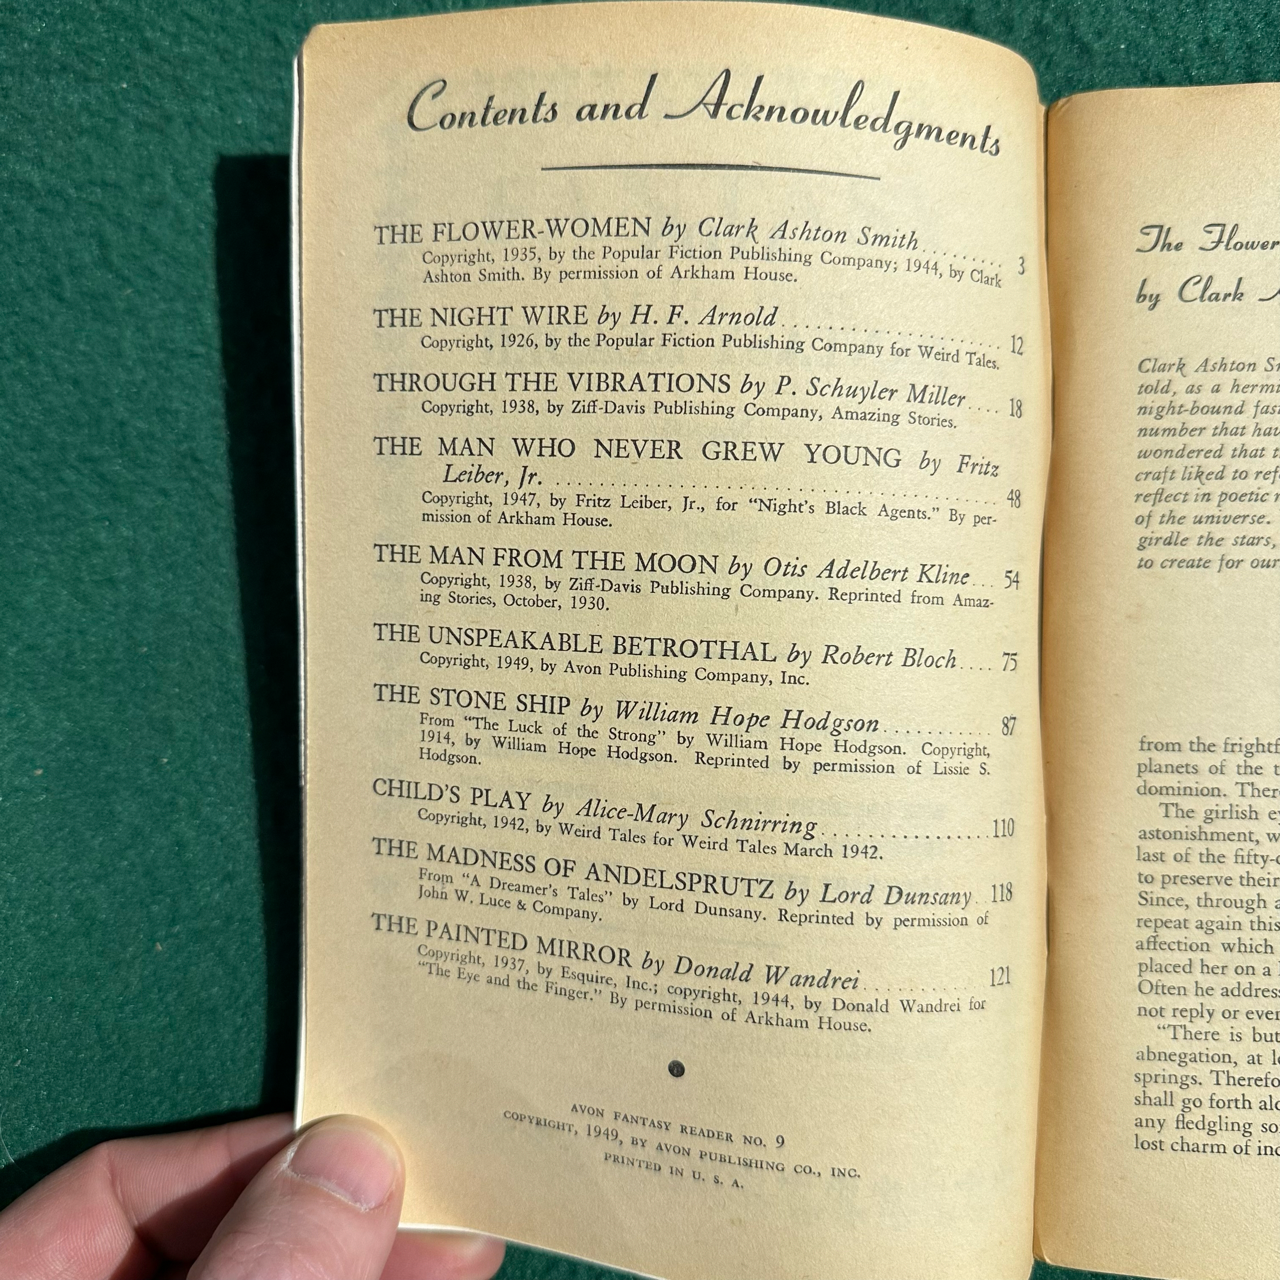 Contents and Acknowledgments
THE FLOWER-WOMEN by Clark Ashton Smith.......... 3
Copyright, 1935, by the Popular Fiction Publishing Company; 1944, by Clark
Ashton Smith. By permission of Arkham House.
THE NIGHT WIRE by H. F. Arnold.................... 12
Copyright, 1926, by the Popular Fiction Publishing Company for Weird Tales.
THROUGH THE VIBRATIONS by P. Schuyler Miller.... 18
Copyright, 1938, by Ziff-Davis Publishing Company, Amazing Stories.
THE MAN WHO NEVER GREW YOUNG by Fritz
Leiber, Jr. ........................................ 48
Copyright, 1947, by Fritz Leiber, Jr., for "Night's Black Agents." By per-
mission of Arkham House.
THE MAN FROM THE MOON by Otis Adelbert Kline... 54
Copyright, 1938, by Ziff-Davis Publishing Company. Reprinted from Amaz-
ing Stories, October, 1930.
THE UNSPEAKABLE BETROTHAL by Robert Bloch.... 75
Copyright, 1949, by Avon Publishing Company, Inc.
THE STONE SHIP by William Hope Hodgson........... 87
From "The Luck of the Strong" by William Hope Hodgson. Copyright,
1914, by William Hope Hodgson. Reprinted by permission of Lissie S.
Hodgson.
CHILD'S PLAY by Alice-Mary Schnirring................110
Copyright, 1942, by Weird Tales for Weird Tales March 1942.
THE MADNESS OF ANDELSPRUTZ by Lord Dunsany. 118
From "A Dreamer's Tales" by Lord Dunsany. Reprinted by permission of
John W. Luce & Company.
THE PAINTED MIRROR by Donald Wandrei............ 121
Copyright, 1937, by Esquire, Inc.; copyright, 1944, by Donald Wandrei for
"The Eye and the Finger." By permission of Arkham House.
AVON FANTASY READER NO. 9
COPYRIGHT, 1949, BY AVON PUBLISHING CO., INC.
PRINTED IN U. S. A.
The Flower
by Clark
Clark Ashton
told, as a
night-bound
number that
wondered that
craft liked to
reflect in poetic
of the universe.
girdle the stars,
to create for our
from the
planets of the
dominion.
The girlish
astonishment,
last of the
to preserve their
Since, through
repeat again this
affection which
placed her on a
Often he
not reply or
"There is but
abnegation, at
springs.
shall go forth
any fledgling
lost charm of